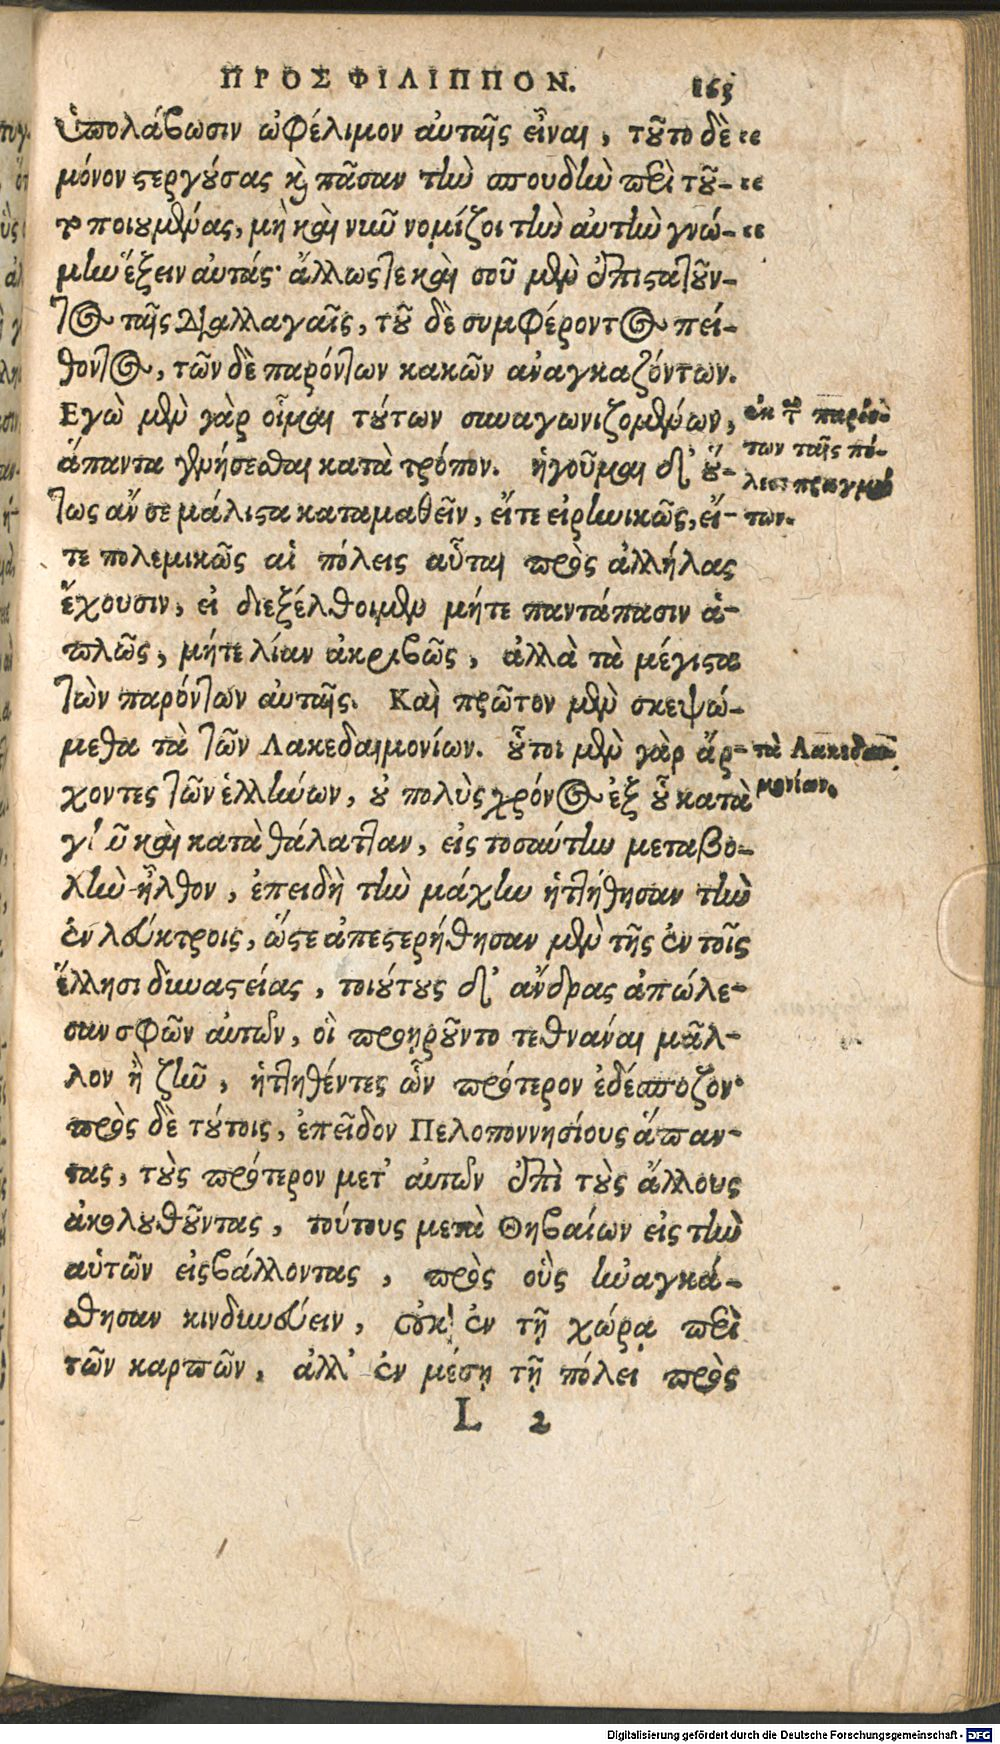 ΠΡΟΣ ΦΙΛΙΠΠΟΝ. 163
ὑπολάβωσιν ὠφέλιμον αὐταῖς εἶναι, τοῦτο δὲ
μόνον στεργούσας καὶ πᾶσαν τὴν σπουδὴν περὶ τού-
του ποιουμένας, μὴ καὶ νῦν νομίζοι τὴν αὐτὴν γνώ-
μην ἕξειν αὐτάς· ἄλλως τε καὶ σοῦ μὲν ἐπιστατοῦν-
τος ταῖς διαλλαγαῖς, τοῦ δὲ συμφέροντος πεί-
θοντος, τῶν δὲ παρόντων κακῶν ἀναγκαζόντων.
Εγὼ μὲν γὰρ οἶμαι τούτων συναγωνιζομένων,
ἅπαντα γενήσεσθαι κατὰ τρόπον. ἡγοῦμαι δ' οὕ-
τως ἄν σε μάλιστα καταμαθεῖν, εἴτε εἰρηνικῶς, εἴ-
τε πολεμικῶς αἱ πόλεις αὗται πρὸς ἀλλήλας
ἔχουσιν, εἰ διεξέλθοιμεν μήτε παντάπασιν ἁ-
πλῶς, μήτε λίαν ἀκριβῶς, ἀλλὰ τὰ μέγιστα
τῶν παρόντων αὐταῖς. Καὶ πρῶτον μὲν σκεψώ-
μεθα τὰ τῶν Λακεδαιμονίων. οὗτοι μὲν γὰρ ἄρ-
χοντες τῶν ἑλλήνων, οὐ πολὺς χρόνος ἐξ οὗ κατὰ
γῆν καὶ κατὰ θάλατταν, εἰς τοσαύτην μεταβο-
λὴν ἦλθον, ἐπειδὴ τὴν μάχην ἡττήθησαν τὴν
ἐν λεύκτροις, ὥστε ἀπεστερήθησαν μὲν τῆς ἐν τοῖς
ἕλλησι δυναστείας, τοιούτους δ' ἄνδρας ἀπώλε-
σαν σφῶν αὐτῶν, οἳ προῃροῦντο τεθνάναι μᾶλ-
λον ἢ ζῆν, ἡττηθέντες ὧν πρότερον ἐδέσποζον·
πρὸς δὲ τούτοις, ἐπεῖδον Πελοποννησίους ἅπαν-
τας, τοὺς πρότερον μετ' αὐτῶν ἐπὶ τοὺς ἄλλους
ἀκολουθοῦντας, τούτους μετὰ Θηβαίων εἰς τὴν
αὑτῶν εἰσβάλλοντας, πρὸς οὓς ἠναγκά-
σθησαν κινδυνεύειν, οὐκ ἐν τῇ χώρᾳ περὶ
τῶν καρπῶν, ἀλλ' ἐν μέσῃ τῇ πόλει πρὸς
L 2
ἐκ τῶν παρόν-
των ταῖς πό-
λεσι πραγμά
των.
τὰ Λακεδαι
μονίων.
Digitalisierung gefördert durch die Deutsche Forschungsgemeinschaft - DFG